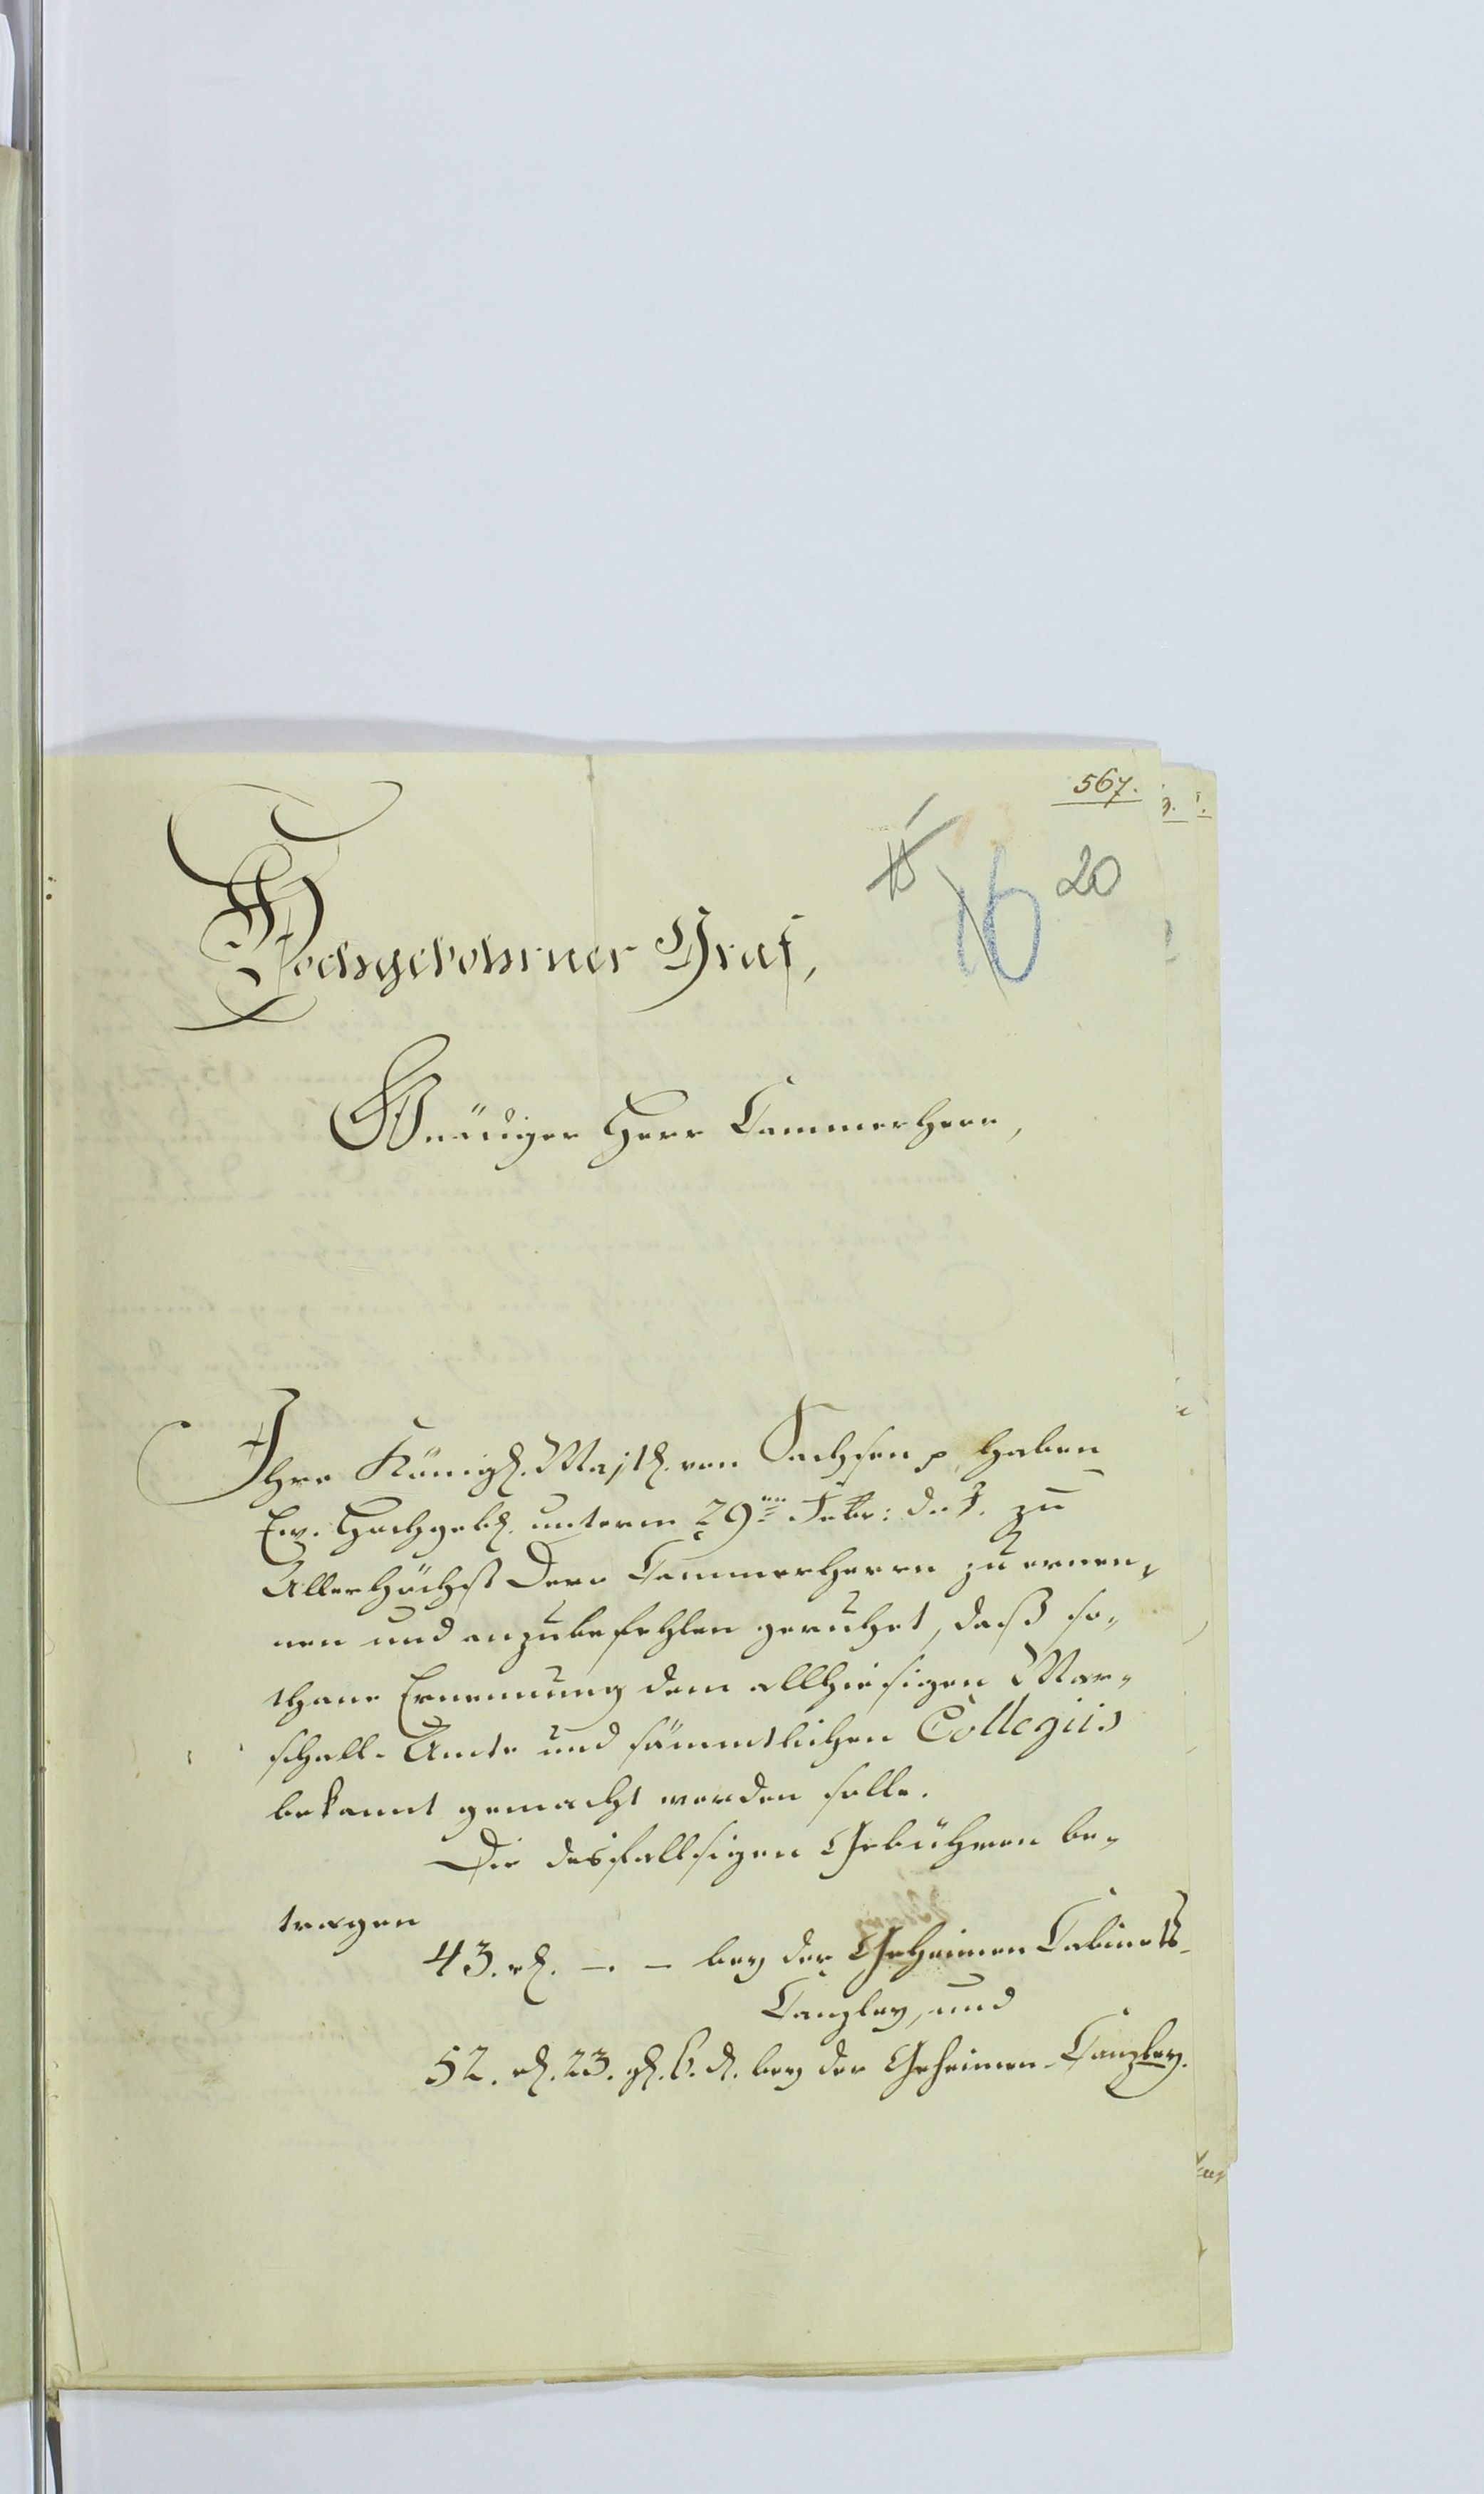 567.
16 20
Hochgebohrner Graf,
Gnädiger Herr Cammerherr,
Ihro Königl. Majtl. von Sachsen p. haben
Ew. Hochgebl. unterm 29ten Febr: d. J. zu
Allerhöchst Dero Cammerherrn zu ernen-
nen und anzubefehlen geruhet, daß so-
thane Ernennung dem allhiesigen Mar-
schall-Amte und sämmtlichen Collegiis
bekannt gemacht werden solle.
Die desfallsigen Gebühren be-
tragen
43. rl. -. - bey der Geheimen Cabinets-
Canzley, und
52. rl. 23. gl. 6. d. bey der Geheimen-Canzley.